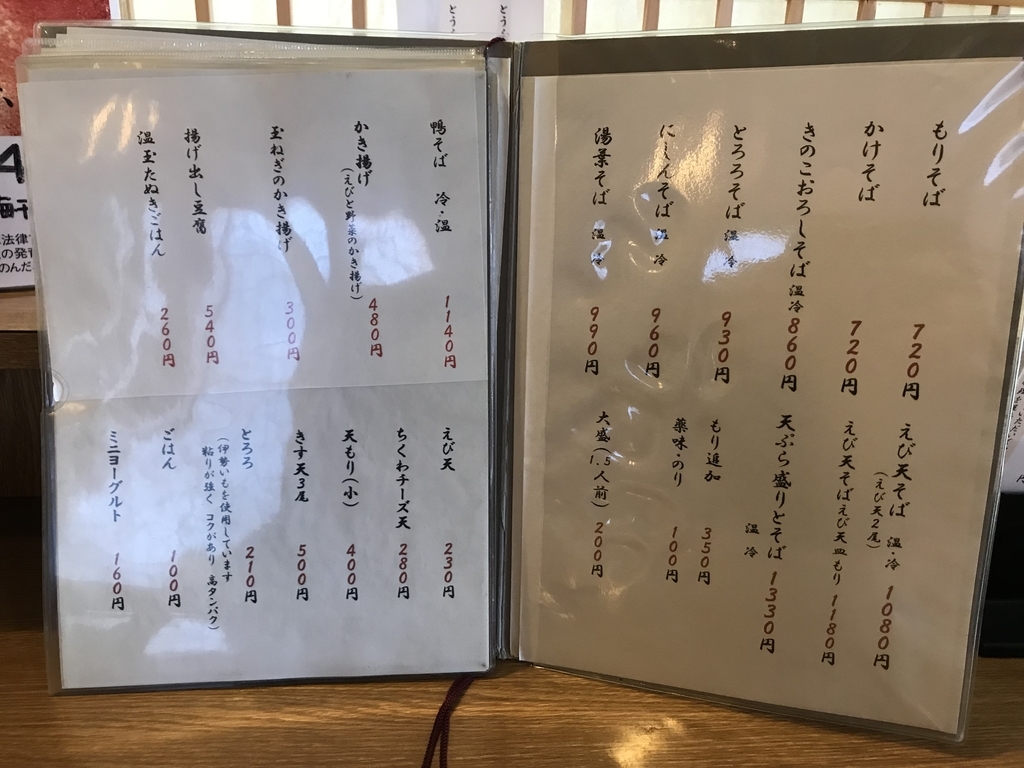 もりそば 720円
かけそば 720円
きのこおろしそば 温 冷 860円
とろろそば 温 冷 930円
にしんそば 温 冷 960円
湯葉そば 温 冷 990円
えび天そば 温・冷 1080円
(えび天2尾)
えび天そばえび天皿もり 1180円
天ぷら盛りとそば 1330円
温 冷
もり追加 350円
薬味・のり 100円
大盛(1.5人前) 200円
鴨そば 冷・温 1140円
かき揚げ 480円
(えびと野菜のかき揚げ)
玉ねぎのかき揚げ 300円
揚げ出し豆腐 540円
温玉たぬきごはん 260円
えび天 230円
ちくわチーズ天 280円
天もり(小) 400円
きす天3尾 500円
とろろ 210円
(伊勢いもを使用しています
粘りが強く コクがあり 高タンパク)
ごはん 100円
ミニヨーグルト 160円
法律